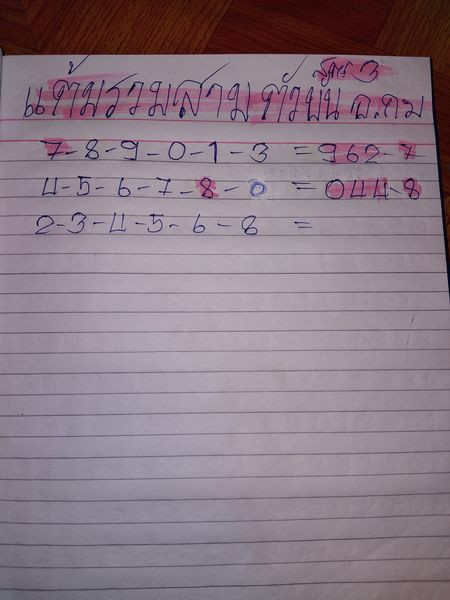 สูตร 3
แต้มรวมสามตัวบน อ.ถม
7-8-9-0-1-3 = 962-7
4-5-6-7-8-0 = 044-8
2-3-4-5-6-8 =